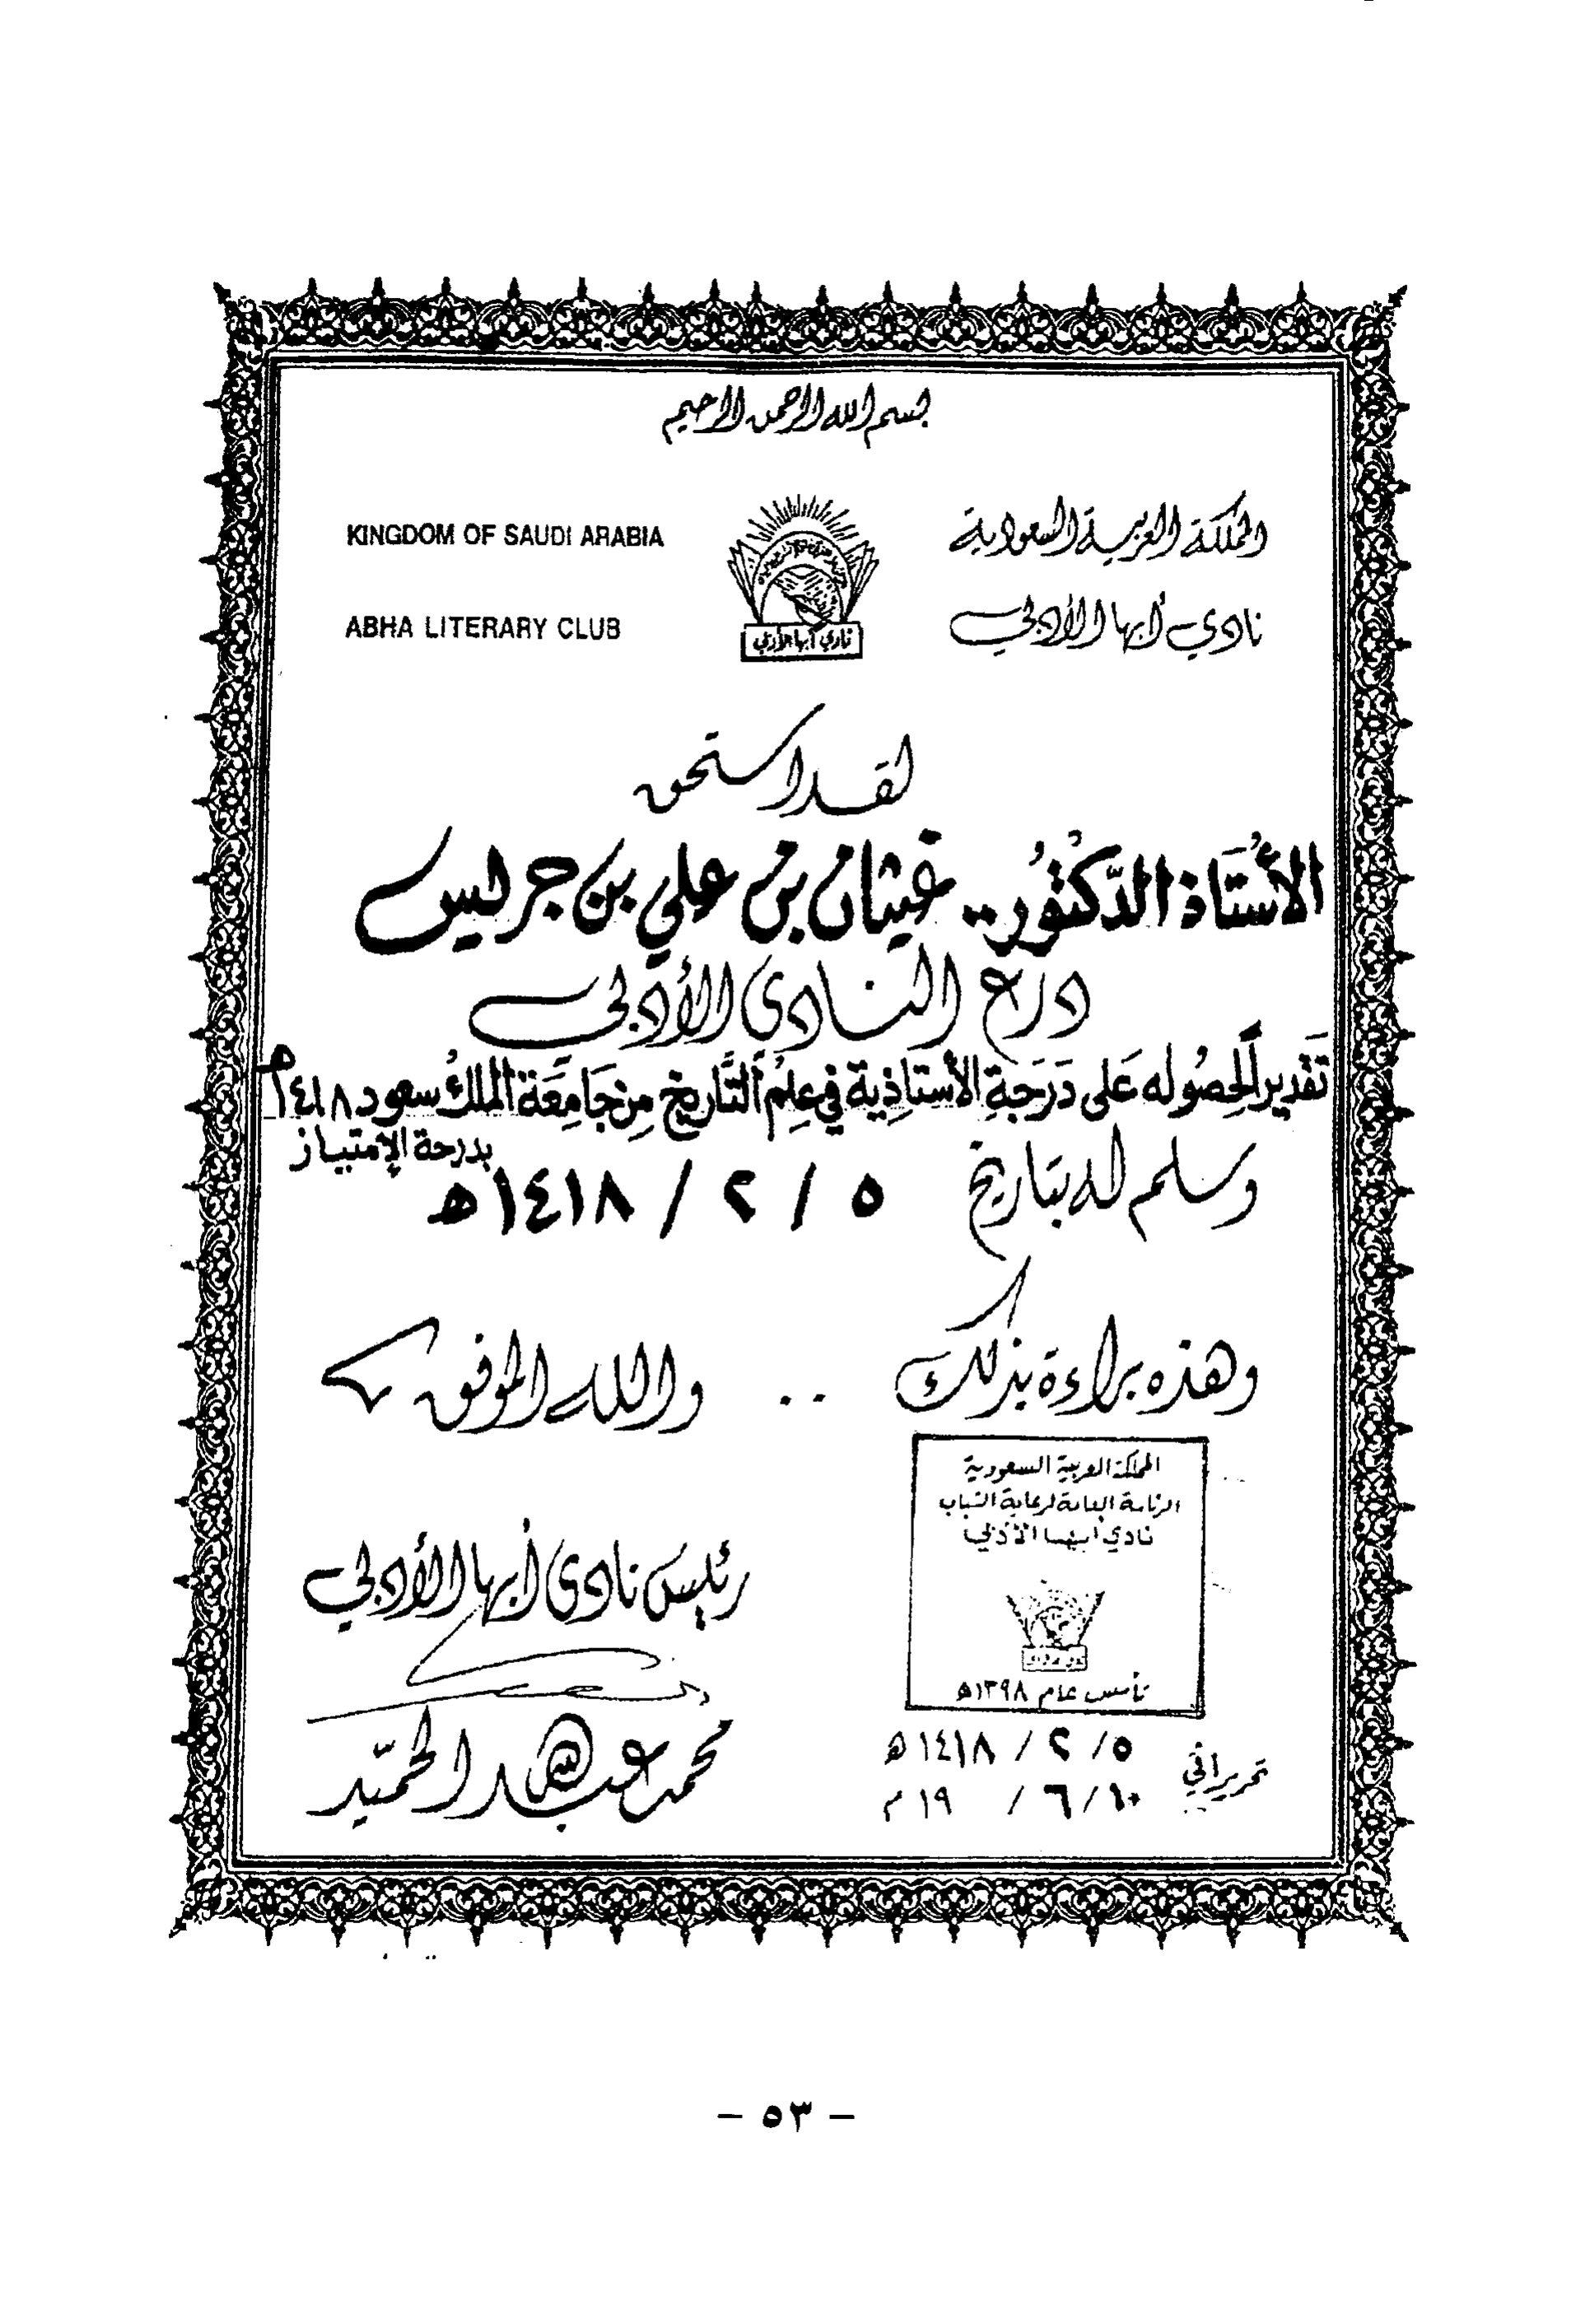 بسم الله الرحمن الرحيم
المملكة العربية السعودية
KINGDOM OF SAUDI ARABIA
نادي أبها الأدبي
ABHA LITERARY CLUB
نادي أبها الأدبي
لقد استحق
الأُستَاذ الدَّكتُور .. غيثان بن علي بن جريس
درع النادي الأدبي
تَقديراً لحصُوله عَلى دَرَجةِ الأستاذية في عِلم التَّاريخ مِن جَامِعَة الملك سعود ١٤١٨هـ
بدرجة الإمتياز
وسلم له بتاريخ ٥ / ٢ / ١٤١٨هـ
وهذه براءة بذلك .. والله الموفق
المملكة العربية السعودية
الرئاسة العامة لرعاية الشباب
نادي أبها الأدبي
تأسس عام ١٣٩٨هـ
رئيس نادي أبها الأدبي
محمد عبد الله الحميّد
تحريراً في ٥/ ٢ / ١٤١٨هـ
١٠/ ٦ / ١٩ م
– ٥٣ –